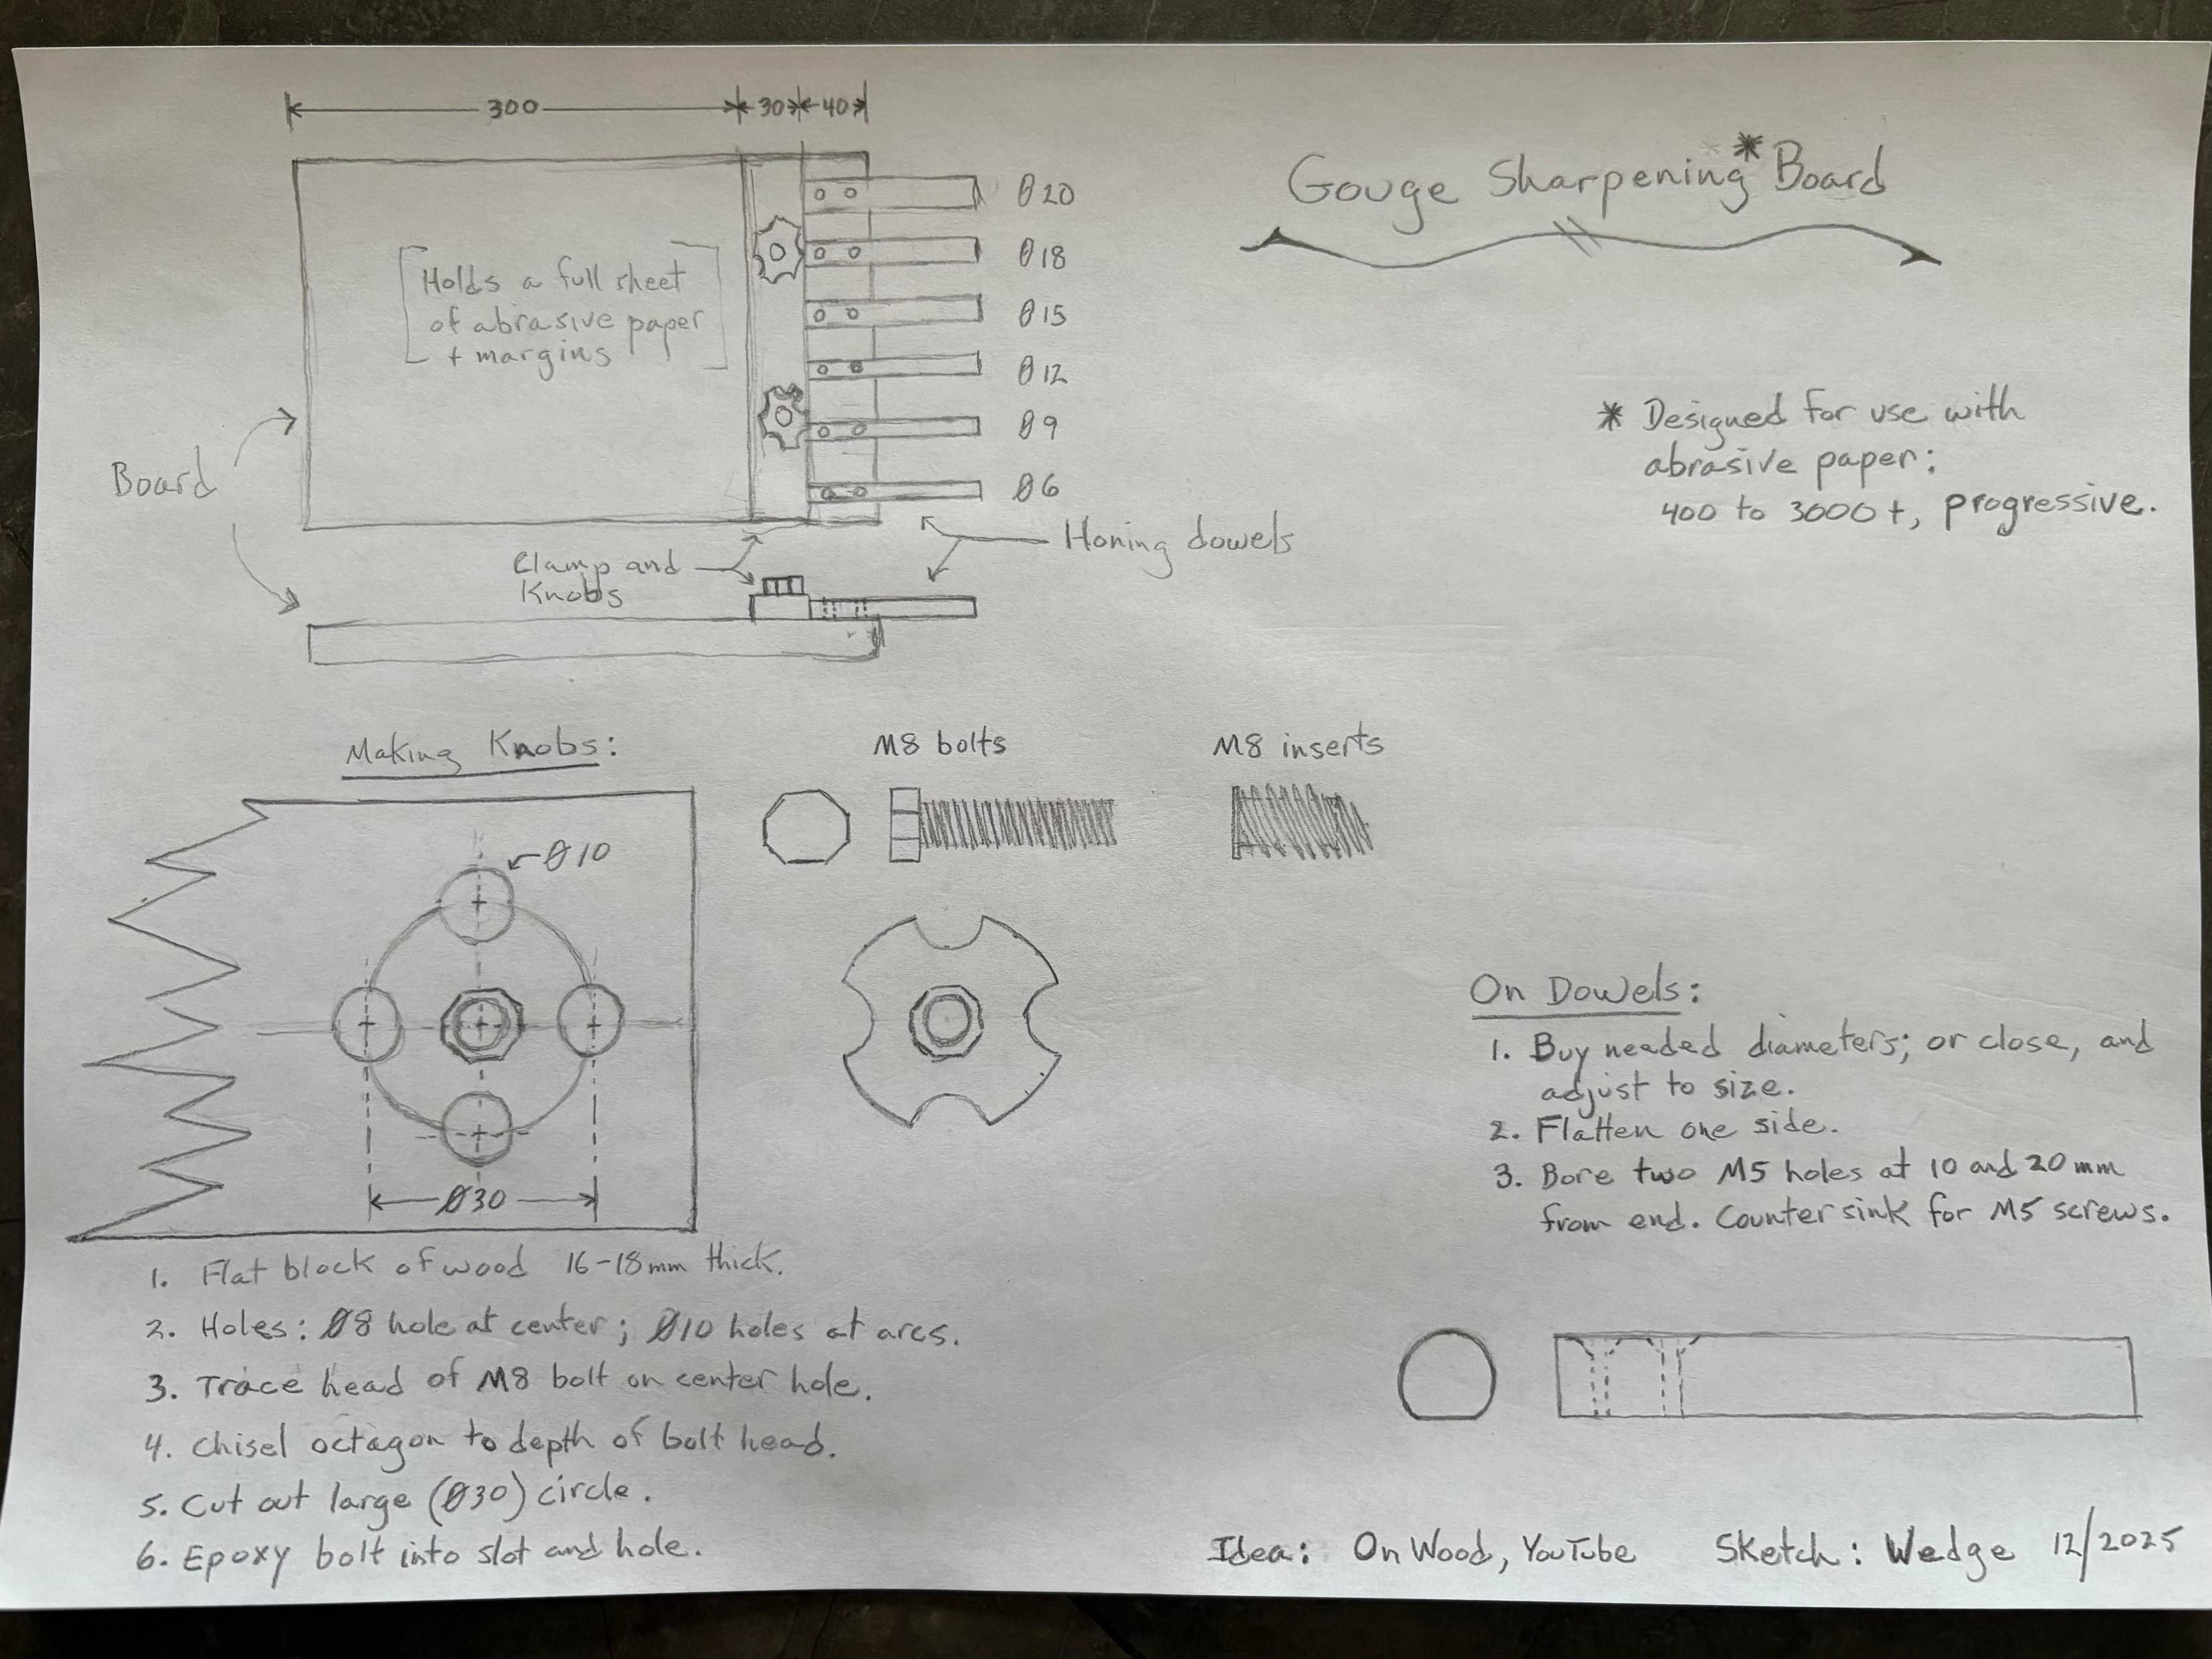 300 30 40
Gouge Sharpening* Board
Ø20
Ø18
Ø15
Ø12
Ø9
Ø6
Holds a full sheet
of abrasive paper
+ margins
* Designed for use with
abrasive paper:
400 to 3000+, progressive.
Board
Clamp and
Knobs
Honing dowels
Making Knobs:
M8 bolts
M8 inserts
Ø10
Ø30
1. Flat block of wood 16-18mm thick.
2. Holes: Ø8 hole at center; Ø10 holes at arcs.
3. Trace head of M8 bolt on center hole.
4. Chisel octagon to depth of bolt head.
5. Cut out large (Ø30) circle.
6. Epoxy bolt into slot and hole.
On Dowels:
1. Buy needed diameters; or close, and
adjust to size.
2. Flatten one side.
3. Bore two M5 holes at 10 and 20mm
from end. Counter sink for M5 screws.
Idea: On Wood, YouTube Sketch: Wedge 12/2025